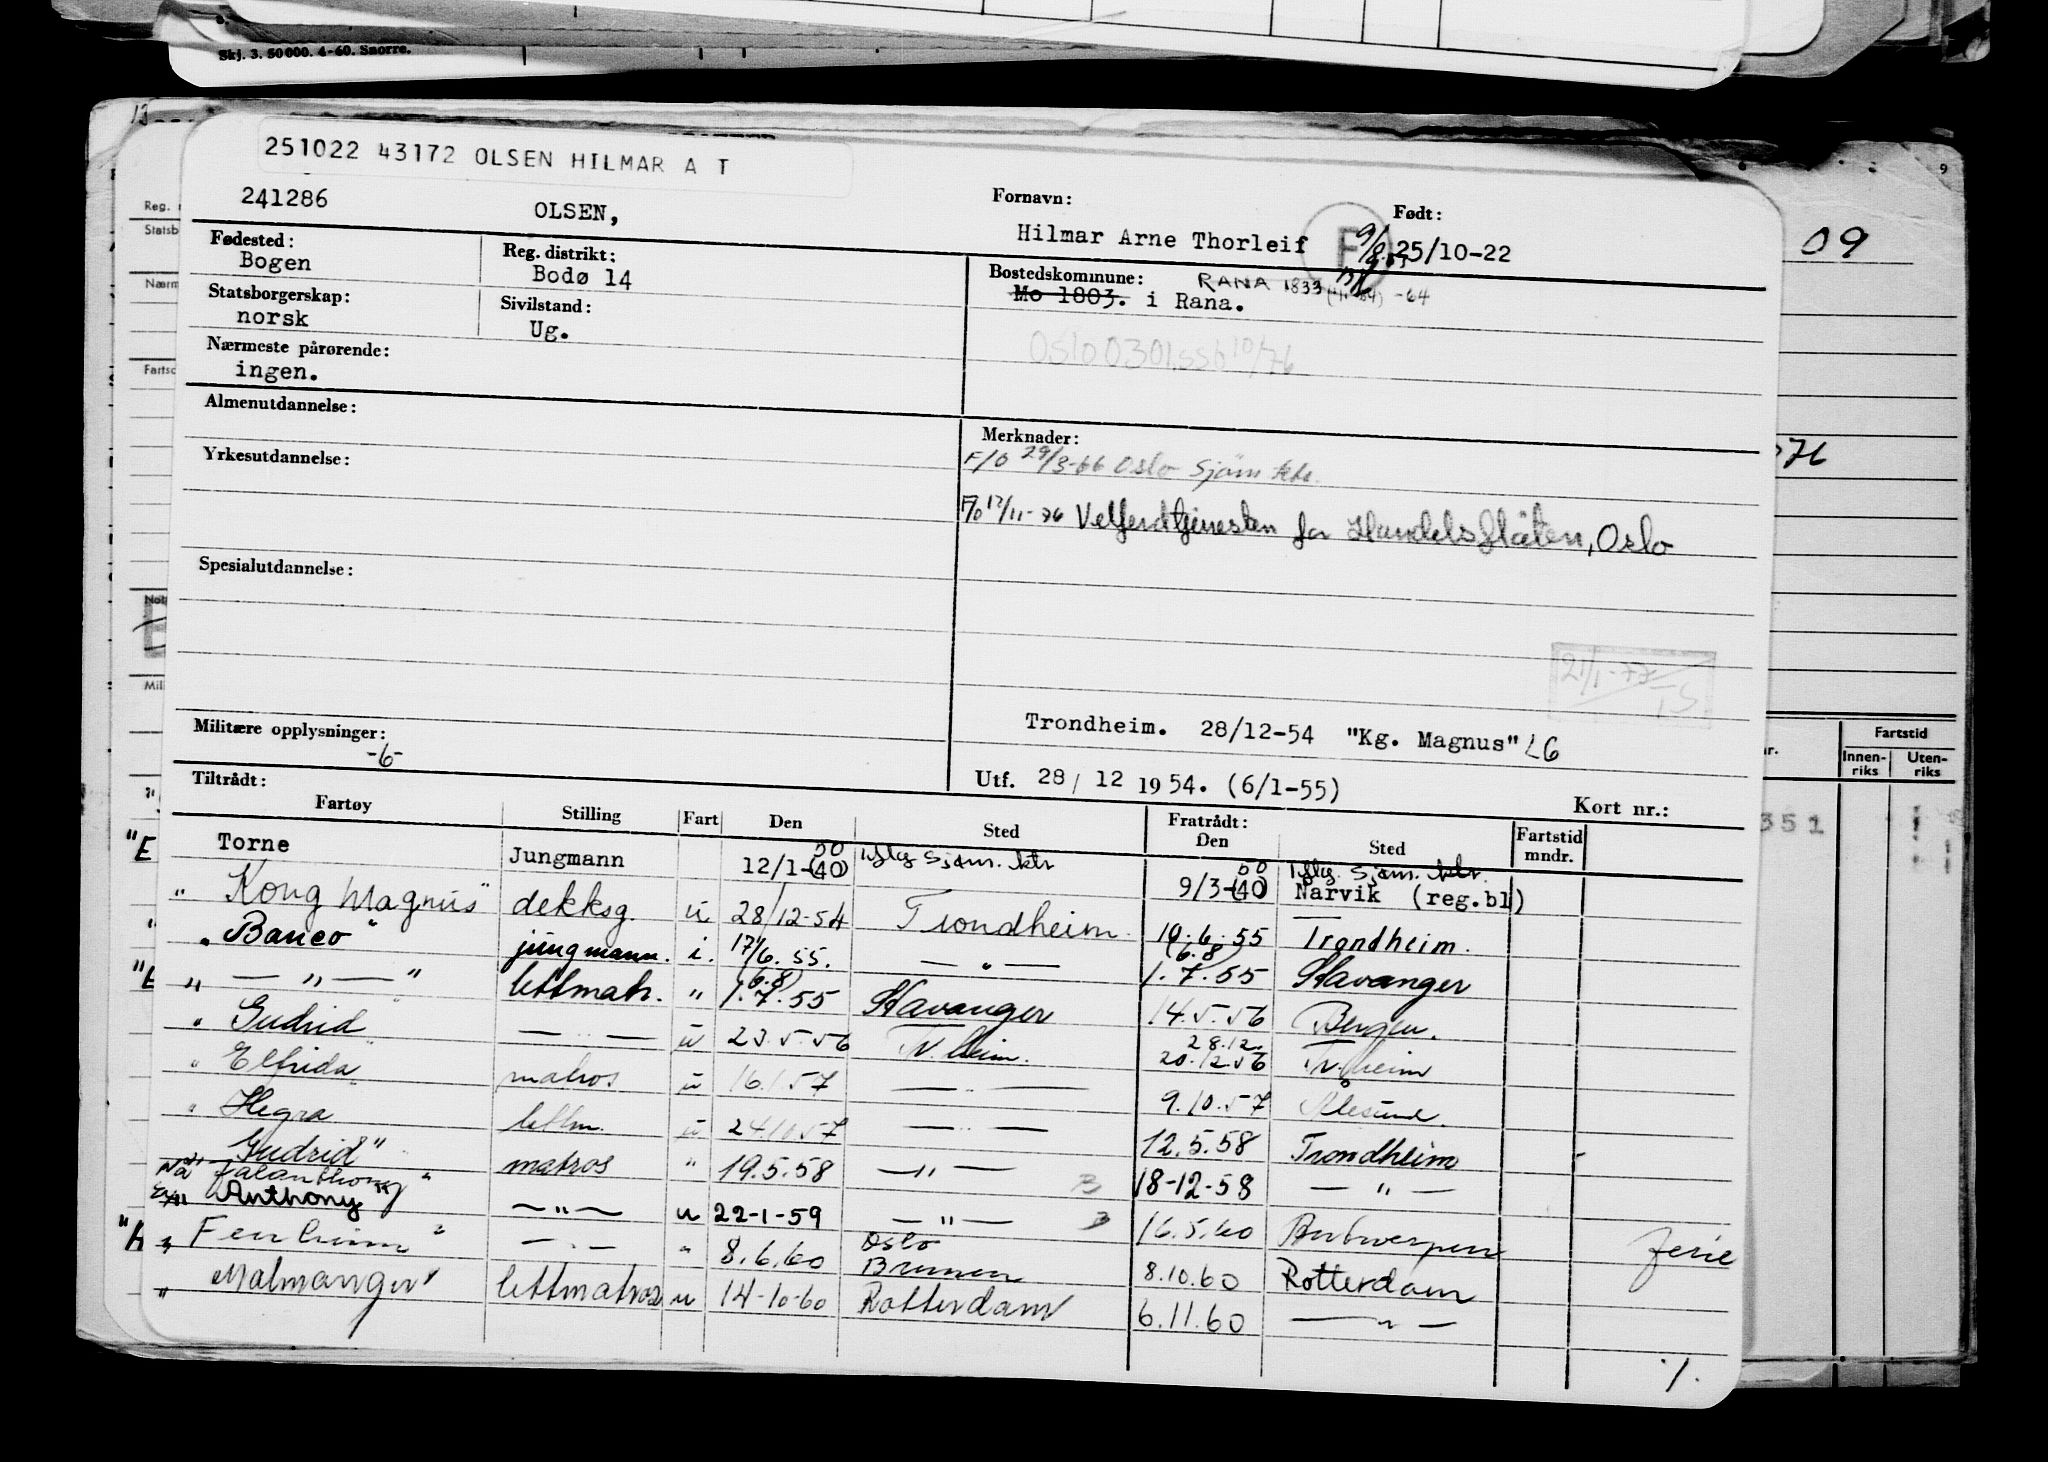 Skj. 3. 50 000. 4-60. Snorre.
251022 43172 OLSEN HILMAR A T
241286 OLSEN, Fornavn: Hilmar Arne Thorleif Født: 25/10-22
09
Fødested: Bogen Reg. distrikt: Bodø 14 Bostedskommune: Mo 1803. i Rana. RANA 1833 -64
Statsborgerskap: norsk Sivilstand: Ug.
Oslo 0301 ssb 10/76
Nærmeste pårørende: ingen.
Almenutdannelse:
Merknader:
F/O 29/3-66 Oslo Sjøm. ktr.
Yrkesutdannelse:
F/O 17/11-76 Velferdtjenesten for Handelsflåten, Oslo
Spesialutdannelse:
21/1-77 TS
Trondheim. 28/12-54 "Kg. Magnus" LG
Militære opplysninger: -6-
Utf. 28/ 12 1954. (6/1-55)
Kort nr.:
Fartstid
Innen- riks Uten- riks
351
Tiltrådt: Fratrådt:
Fartøy Stilling Fart Den Sted Den Sted Fartstid mndr.
"E Torne Jungmann 12/1-(40) 50 iflg Sjøm. ktr 9/3-(40) 50 iflg. Sjøm. ktr. Narvik (reg.bl)
" Kong Magnus" dekksg. u 28/12-54 Trondheim. 10.6.55 Trondheim.
" Banco" jungmann. i. 17/6.55. — " — (6.8) 1.7.55 Stavanger
"E " — " — " lettmatr. " (6.8) 1.7.55 Stavanger 14.5.56 Bergen.
" Gudrid — " — u 23.5.56 Tr.heim. 28.12. 20.12.56 Tr.heim
" Elfrida" matros u 16.1.57 — " — 9.10.57 Ålesund.
" Hegra lettm. u 24.10.57 — " — 12.5.58 Trondheim
" Gudrid" matros " 19.5.58 — " — 18-12-58 — " —
Anthony" — " — u 22-1-59 — " — 16.5.60 Antwerpen Ferie
"A " Fernheim" — " — " 8.6.60 Oslo Bremen 8.10.60 Rotterdam
" Malmanger" lettmatros u 14-10-60 Rotterdam 6.11.60 — " —